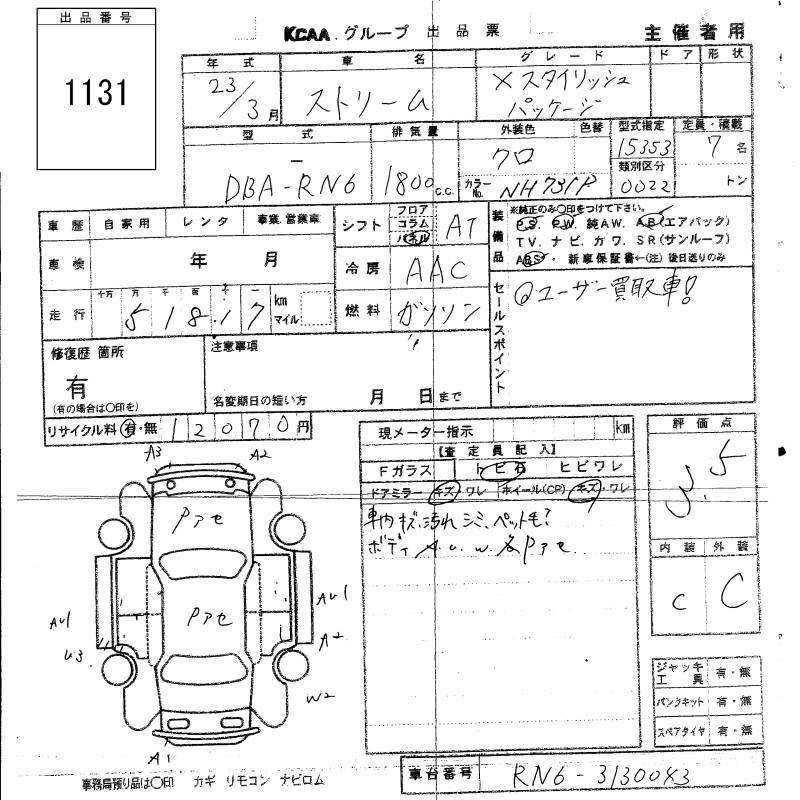 出品番号
1131
KCAA グループ 出品票
主催者用
年式 車名 グレード ドア 形状
23/3月 ストリーム Xスタイリッシュ
パッケージ
型式 排気量 外装色 色替 型式指定 定員・積載
DBA-RN6 1800 C.C. クロ 15353 7名
カラーNo. NH731P 類別区分 0022 トン
車歴 自家用 レンタ 事業.営業車
シフト フロア コラム パネル AT
車検 年 月
冷房 AAC
走行 十万 万 千 百 十 一 51817 km マイル
燃料 ガソリン
装備品 ※純正のみ〇印をつけて下さい。
PS. PW. 純AW. AB(エアバック)
TV. ナビ. カワ. SR(サンルーフ)
ABS・ 新車保証書←(注)後日送りのみ
セールスポイント
@ユーザー買取車!
修復歴 箇所
有
(有の場合は〇印を)
注意事項
名変期日の短い方 月 日まで
リサイクル料 有・無 12070円
現メーター指示 km
【査定員記入】
Fガラス トビ石 ヒビワレ
ドアミラー キズ・ワレ ホイール(CP) キズ・ワレ
車内 キズ、汚れ シミ、ペット毛?
ボディ A. U. W. Pアセ
評価点
3.5
内装 外装
C C
A3 A2
Pアセ
Pアセ
AU1 AU1
U3 A2
W2
A1
ジャッキ工具 有・無
パンクキット 有・無
スペアタイヤ 有・無
事務局預り品は〇印 カギ リモコン ナビロム
車台番号 RN6-3130043